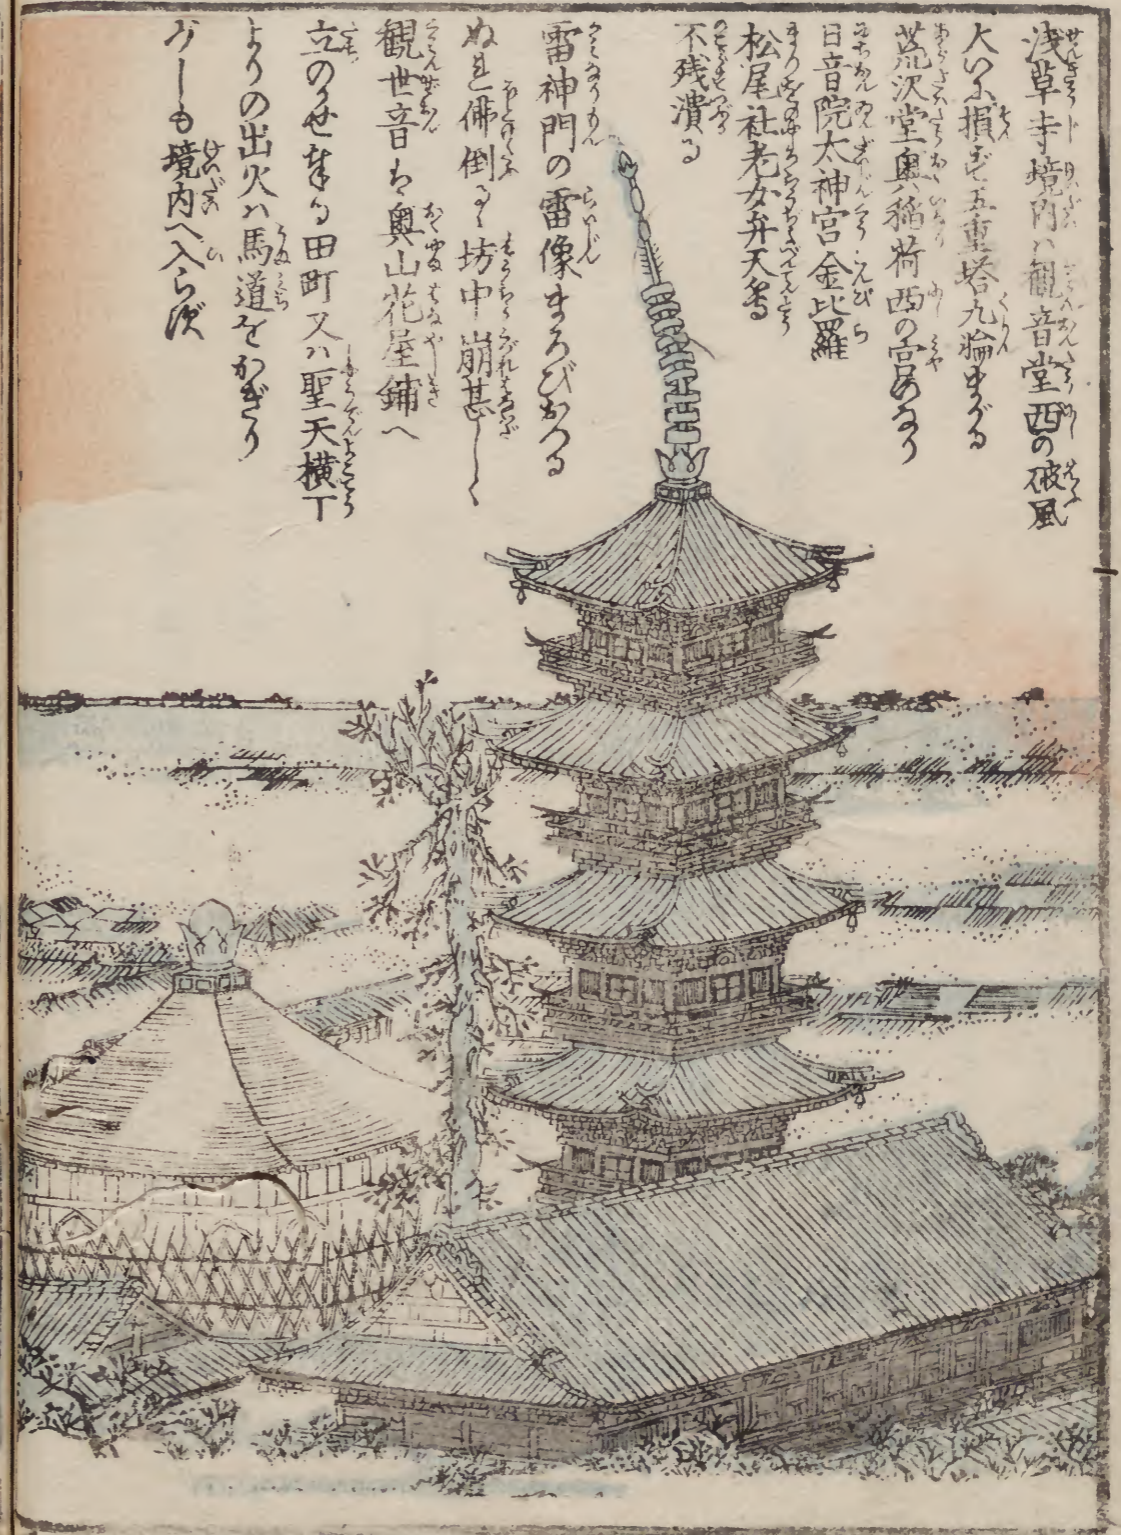 浅草寺境内ハ観音堂西の破風
大いに損ず五重塔九輪まがる
荒沢堂奥稲荷西の宮のあり
日音院太神宮金比羅
松尾社老女弁天等
不残潰る
雷神門の雷像まろびおつる
ぬれ佛倒るゝ坊中崩甚しく
観世音は奥山花屋鋪へ
立のかせ奉る田町又ハ聖天横丁
よりの出火ハ馬道をかぎり
少しも境内へ入らず